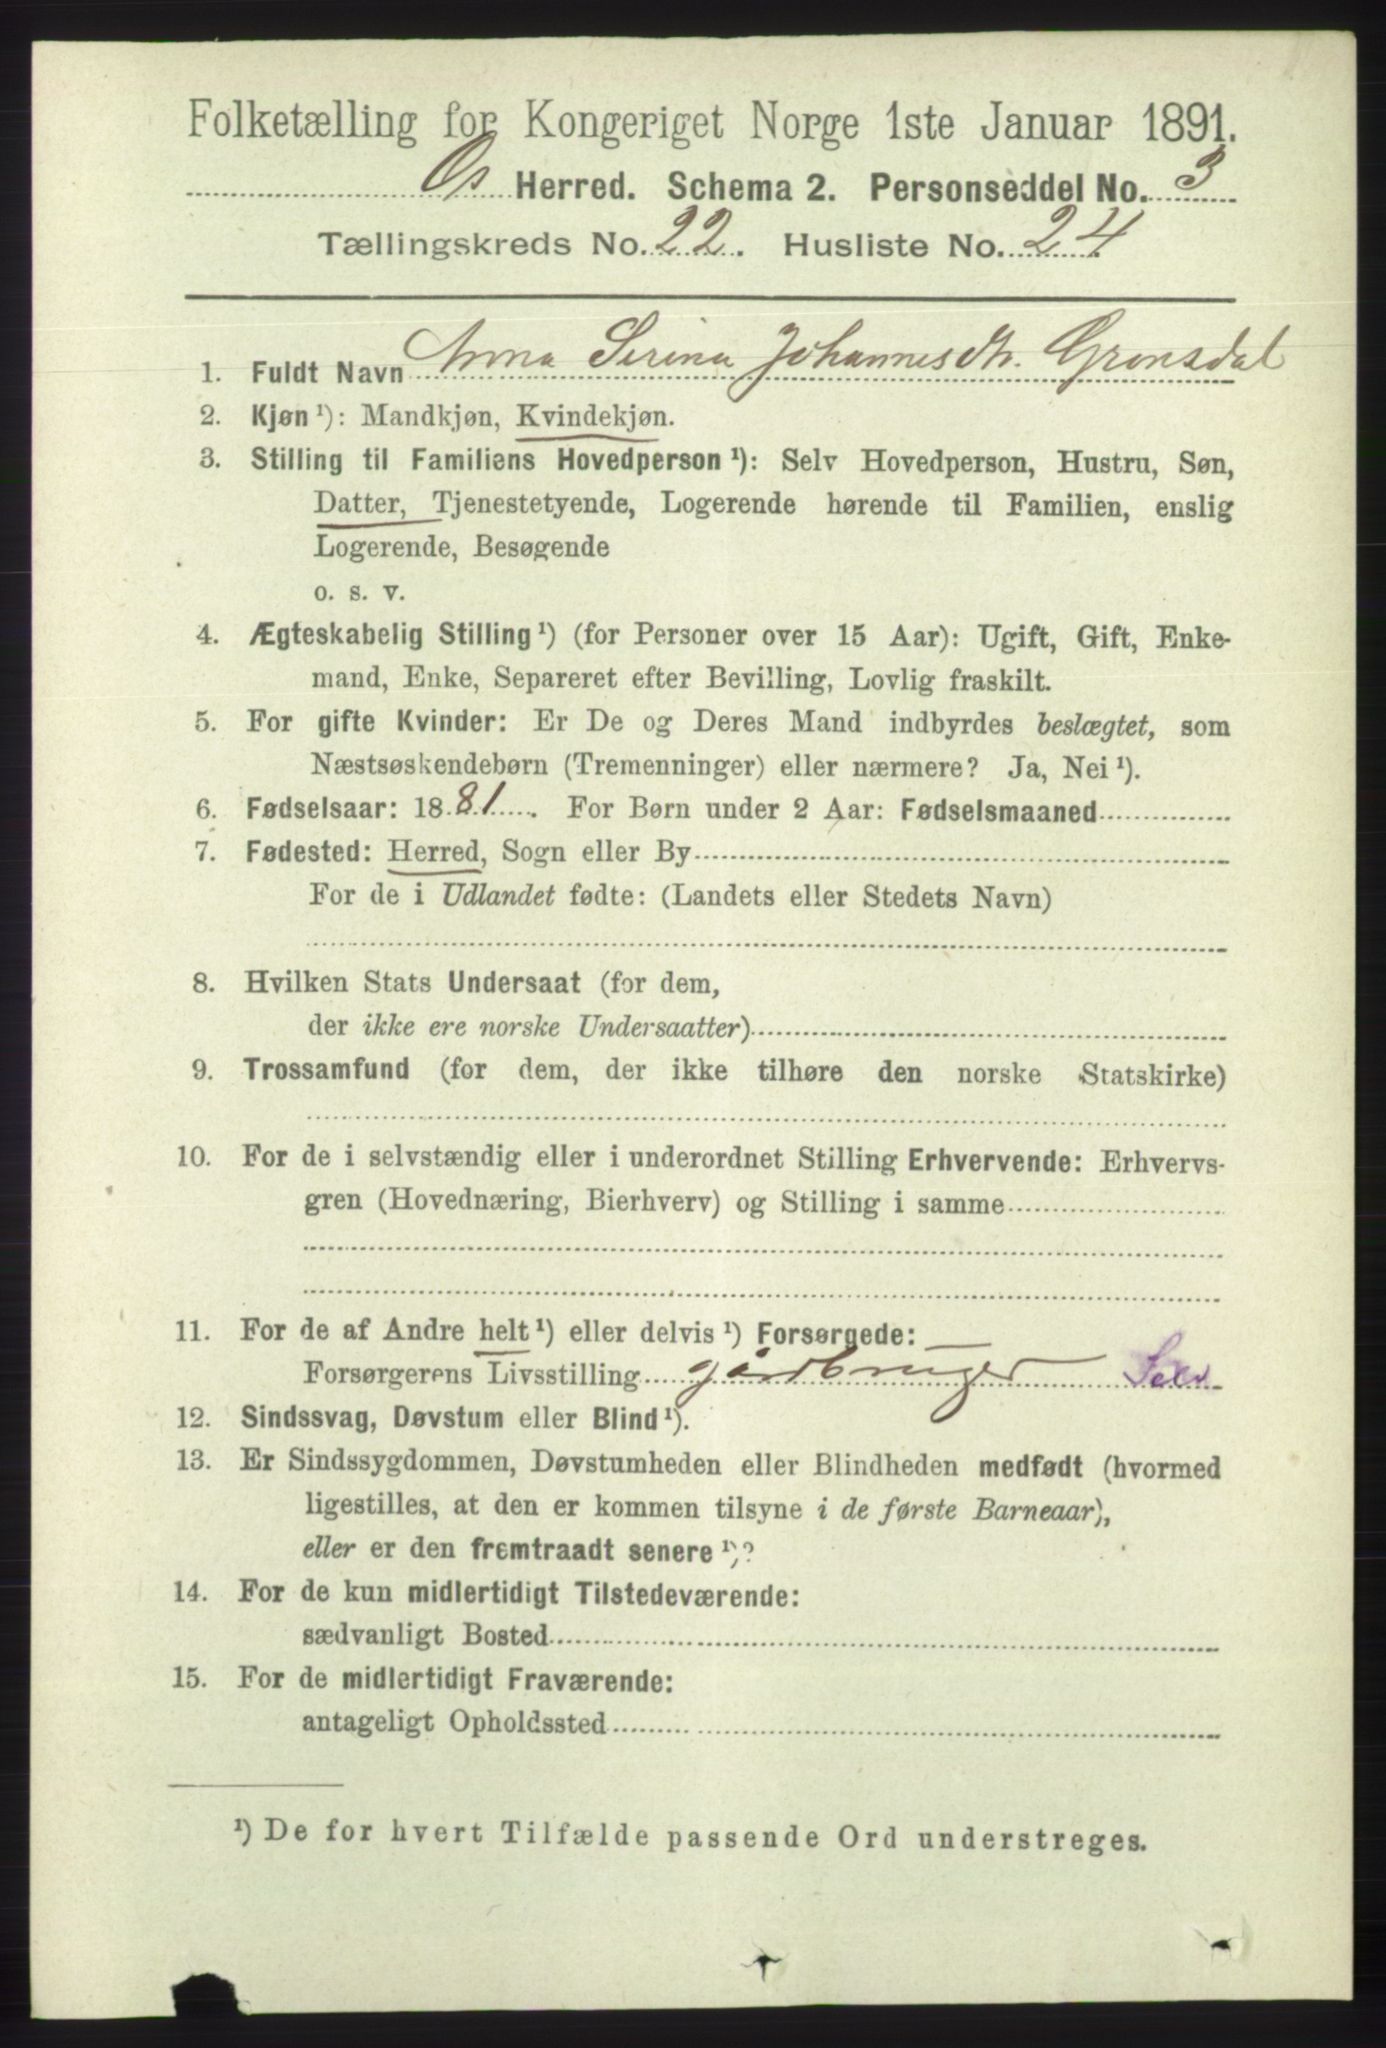 Folketælling for Kongeriget Norge 1ste Januar 1891.
Os Herred. Schema 2. Personseddel No. 3
Tællingskreds No. 22. Husliste No. 24
1. Fuldt Navn Anna Serina Johannesdtr. Grønsdal
2. Kjøn ¹): Mandkjøn, Kvindekjøn.
3. Stilling til Familiens Hovedperson ¹): Selv Hovedperson, Hustru, Søn,
Datter, Tjenestetyende, Logerende hørende til Familien, enslig
Logerende, Besøgende
o. s. v.
4. Ægteskabelig Stilling ¹) (for Personer over 15 Aar): Ugift, Gift, Enke-
mand, Enke, Separeret efter Bevilling, Lovlig fraskilt.
5. For gifte Kvinder: Er De og Deres Mand indbyrdes beslægtet, som
Næstsøskendebørn (Tremenninger) eller nærmere? Ja, Nei ¹).
6. Fødselsaar: 1881. For Børn under 2 Aar: Fødselsmaaned
7. Fødested: Herred, Sogn eller By
For de i Udlandet fødte: (Landets eller Stedets Navn)
8. Hvilken Stats Undersaat (for dem,
der ikke ere norske Undersaatter)
9. Trossamfund (for dem, der ikke tilhøre den norske Statskirke)
10. For de i selvstændig eller i underordnet Stilling Erhvervende: Erhvervs-
gren (Hovednæring, Bierhverv) og Stilling i samme
11. For de af Andre helt ¹) eller delvis ¹) Forsørgede:
Forsørgerens Livsstilling gårdbruger Selv
12. Sindssvag, Døvstum eller Blind ¹).
13. Er Sindssygdommen, Døvstumheden eller Blindheden medfødt (hvormed
ligestilles, at den er kommen tilsyne i de første Barneaar),
eller er den fremtraadt senere ¹)?
14. For de kun midlertidigt Tilstedeværende:
sædvanligt Bosted
15. For de midlertidigt Fraværende:
antageligt Opholdssted
¹) De for hvert Tilfælde passende Ord understreges.